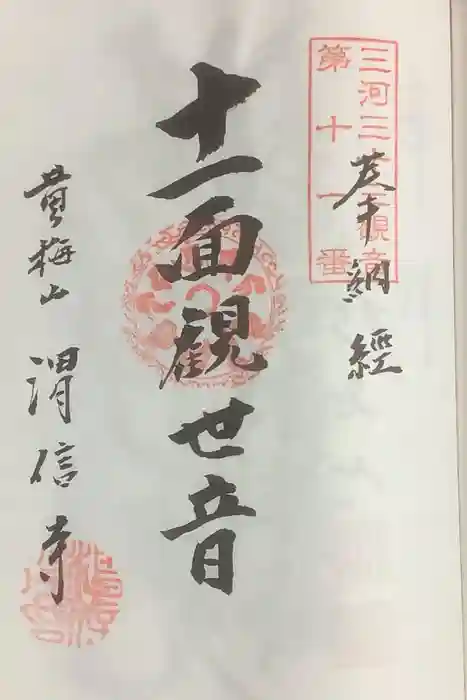 三河三十三観音
第十一番
奉納經
十一面観世音
黄梅山 渭信寺